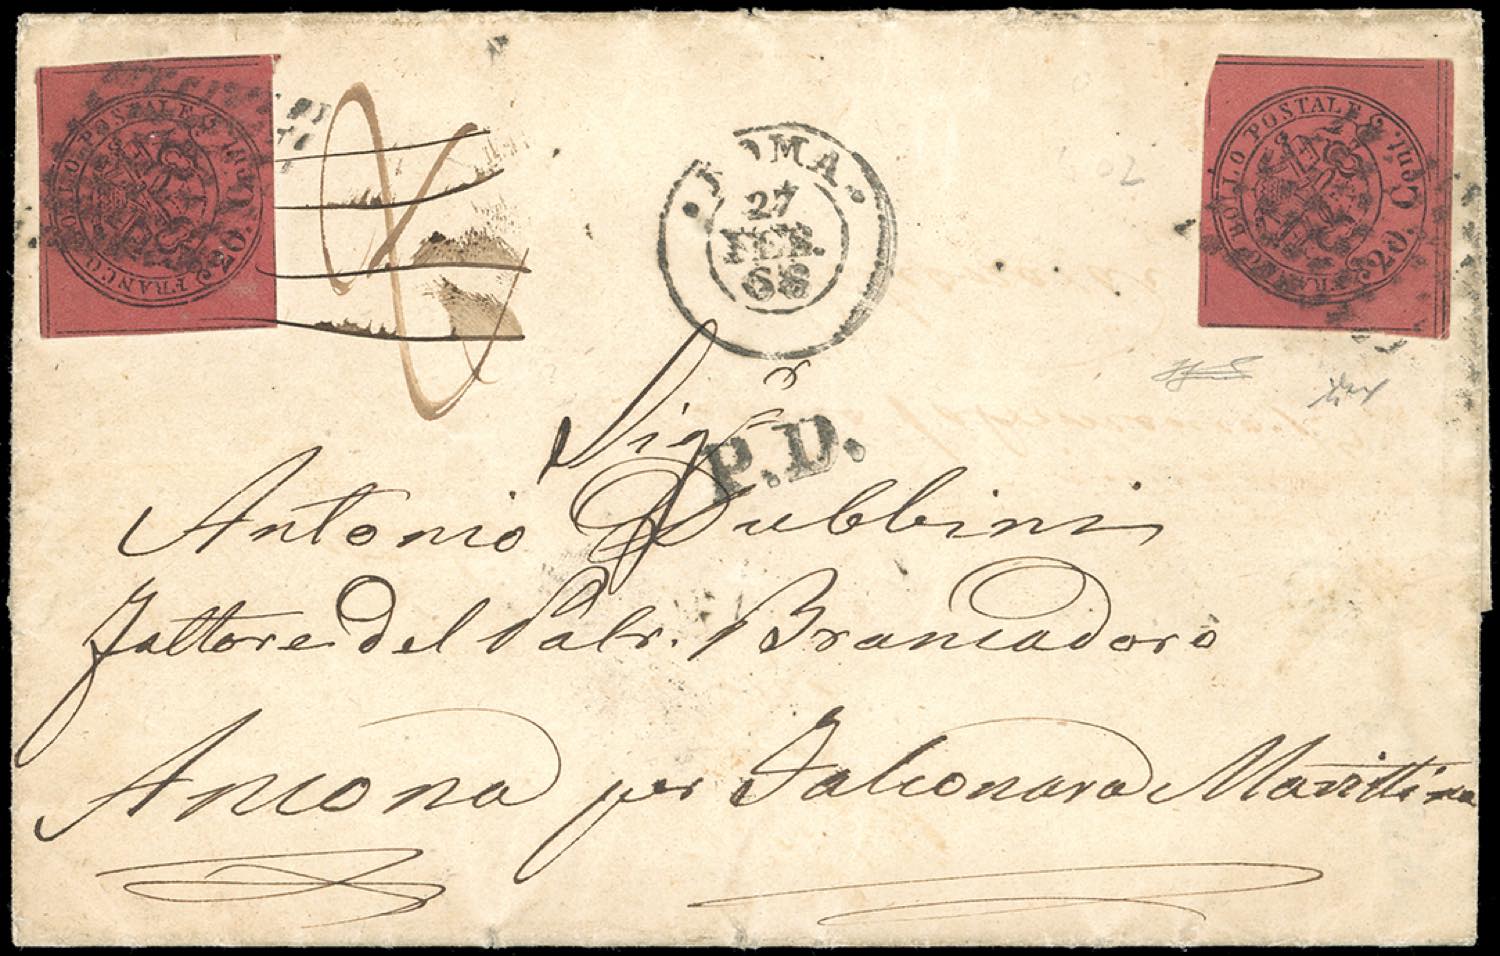 FRANCO BOLLO POSTALE
20. Cent.
ROMA
27
FEB.
68
FRANCO BOLLO POSTALE
20. Cent.
Sigr
P.D.
Antonio Dubbini
Fattore del Patr. Brancadoro
Ancona per Falconara Marittima